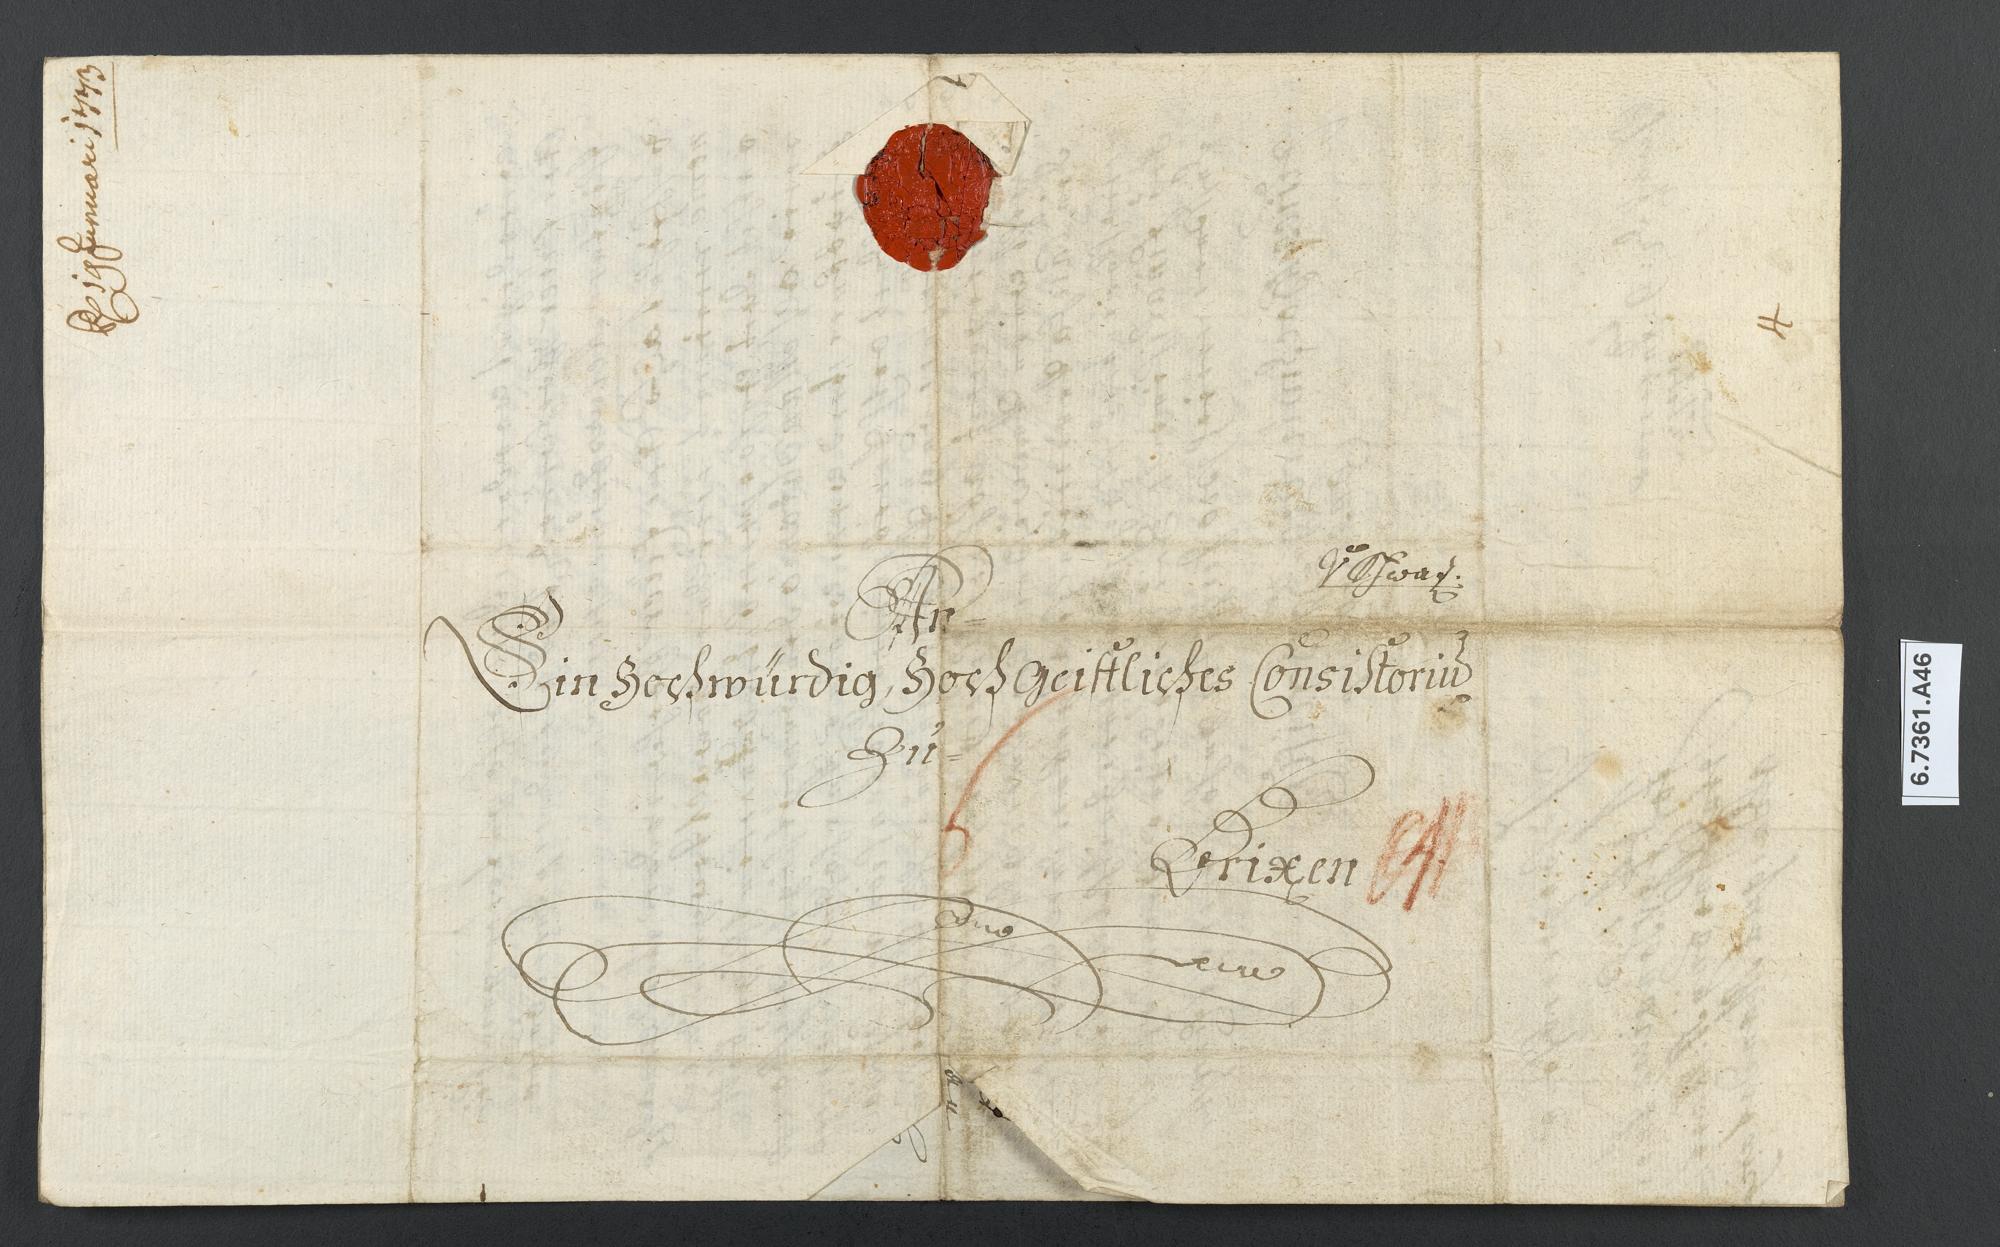 19 Januari 1773
4
V. Schwaz.
An
Ein Hochwürdig, HochGeistliches Consistoriu
Zu
Brixen
6.7361.A46